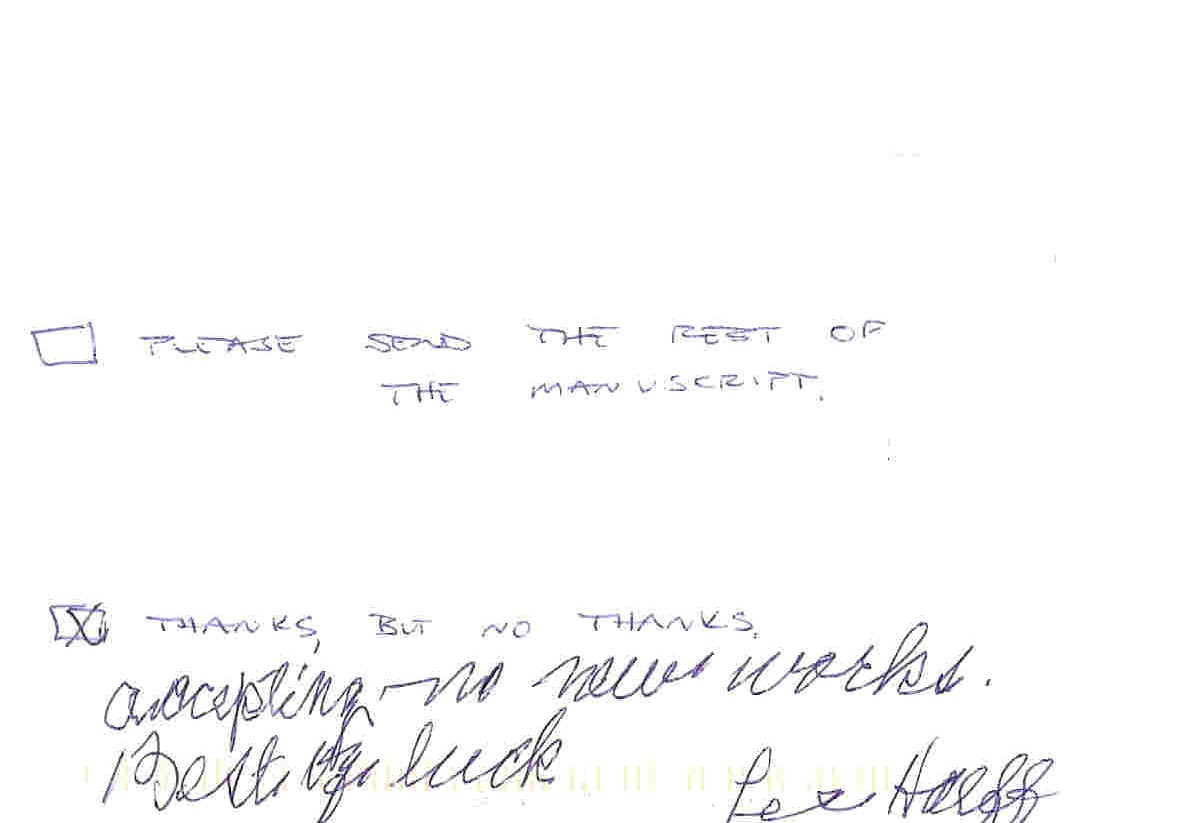 PLEASE SEND THE REST OF
THE MANUSCRIPT.
THANKS, BUT NO THANKS.
accepting no new works.
Best of luck